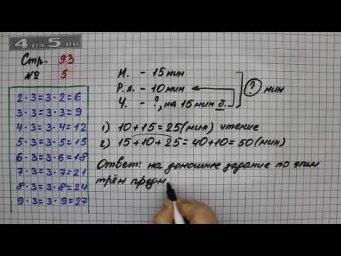 4na5.RU
Стр. 93
№ 5
2·3=3·2=6
3·3=3·3=9
4·3=3·4=12
5·3=3·5=15
6·3=3·6=18
7·3=3·7=21
8·3=3·8=24
9·3=3·9=27
М. - 15 мин
Р.я. - 10 мин
Ч. - ?, на 15 мин б.
? мин
1) 10+15=25(мин) чтение
2) 15+10+25=40+10=50(мин)
Ответ: на домашнее задание по этим
трём предм